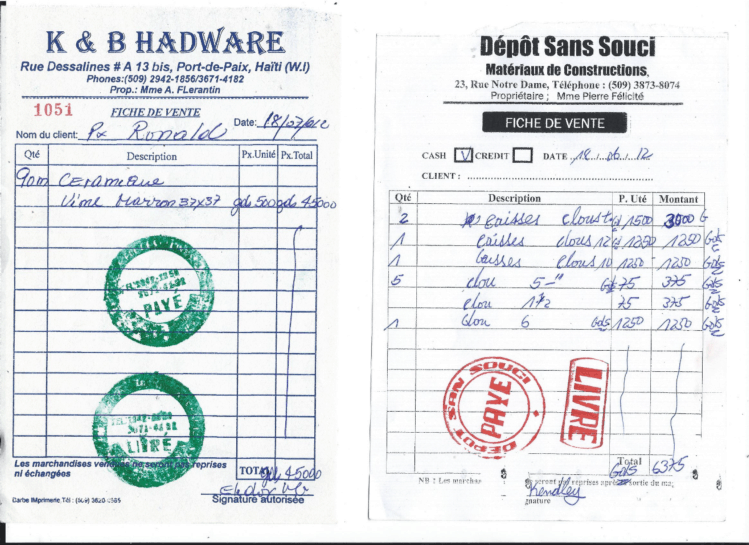 K & B HADWARE
Rue Dessalines # A 13 bis, Port-de-Paix, Haïti (W.I)
Phones:(509) 2942-1856/3671-4182
Prop.: Mme A. FLerantin
1051
FICHE DE VENTE
Date: 18/07/012
Nom du client: Px Ronald
Qté Description Px.Unité Px.Total
90m Ceramique
Vime Marron 37x37 gds 500 gds 45000
PAYE
LIVRE
Les marchandises vendues ne seront pas reprises
ni échangées
TOTAL gds 45000
Signature autorisée
Carbe IMprimerie, Tél : 3620
Dépôt Sans Souci
Matériaux de Constructions,
23, Rue Notre Dame, Téléphone : (509) 3873-8074
Propriétaire ; Mme Pierre Félicité
FICHE DE VENTE
CASH V CREDIT DATE 12
CLIENT :
Qté Description P. Uté Montant
2 caisses clous 1500 3000 G
1 caisses clous 12 G 1250 1250 Gds
1 caisses clous 10 1250 1250 Gds
5 clou 5 Gds 75 375 Gds
clou 1½ 75 375 Gds
1 Clou 6 Gds 1250 1250 Gds
DEPOT SAN SOUCI
PAYE
LIVRE
Total
Gds 6375
NB : Les marchas seront reprises après sortie de ma
Kendley
gnature